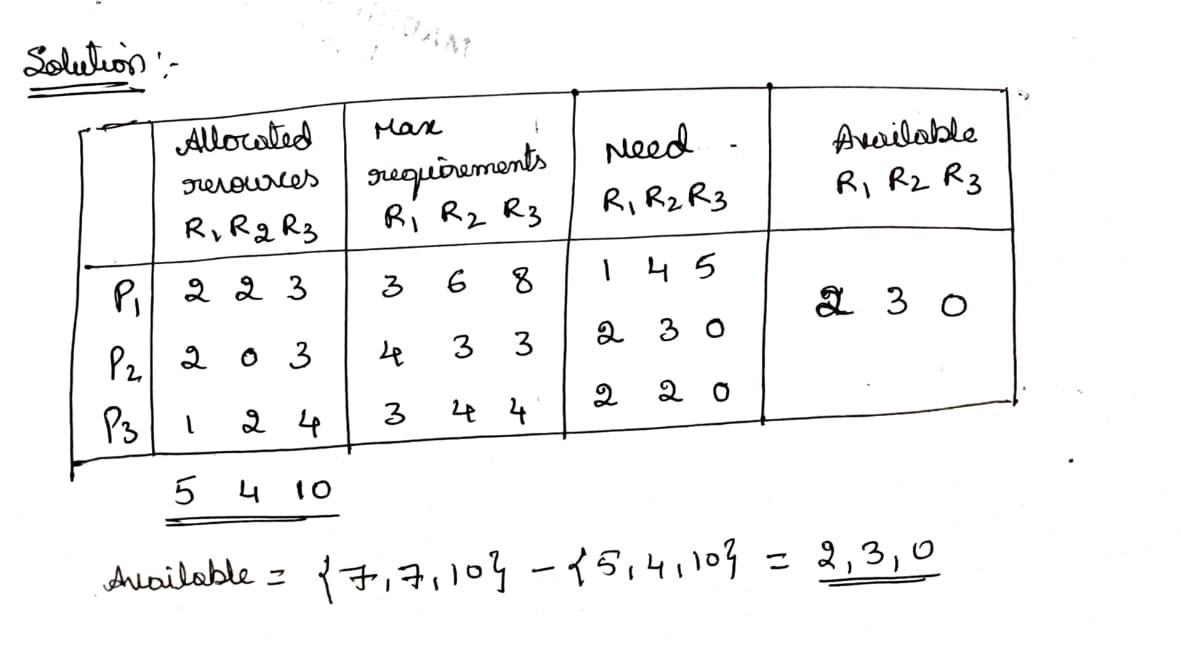 Solution :-
Allocated resources R1 R2 R3 | Max requirements R1 R2 R3 | Need R1 R2 R3 | Available R1 R2 R3
P1 2 2 3 3 6 8 1 4 5 2 3 0
P2 2 0 3 4 3 3 2 3 0
P3 1 2 4 3 4 4 2 2 0
5 4 10
Available = {7,7,10} - {5,4,10} = 2,3,0